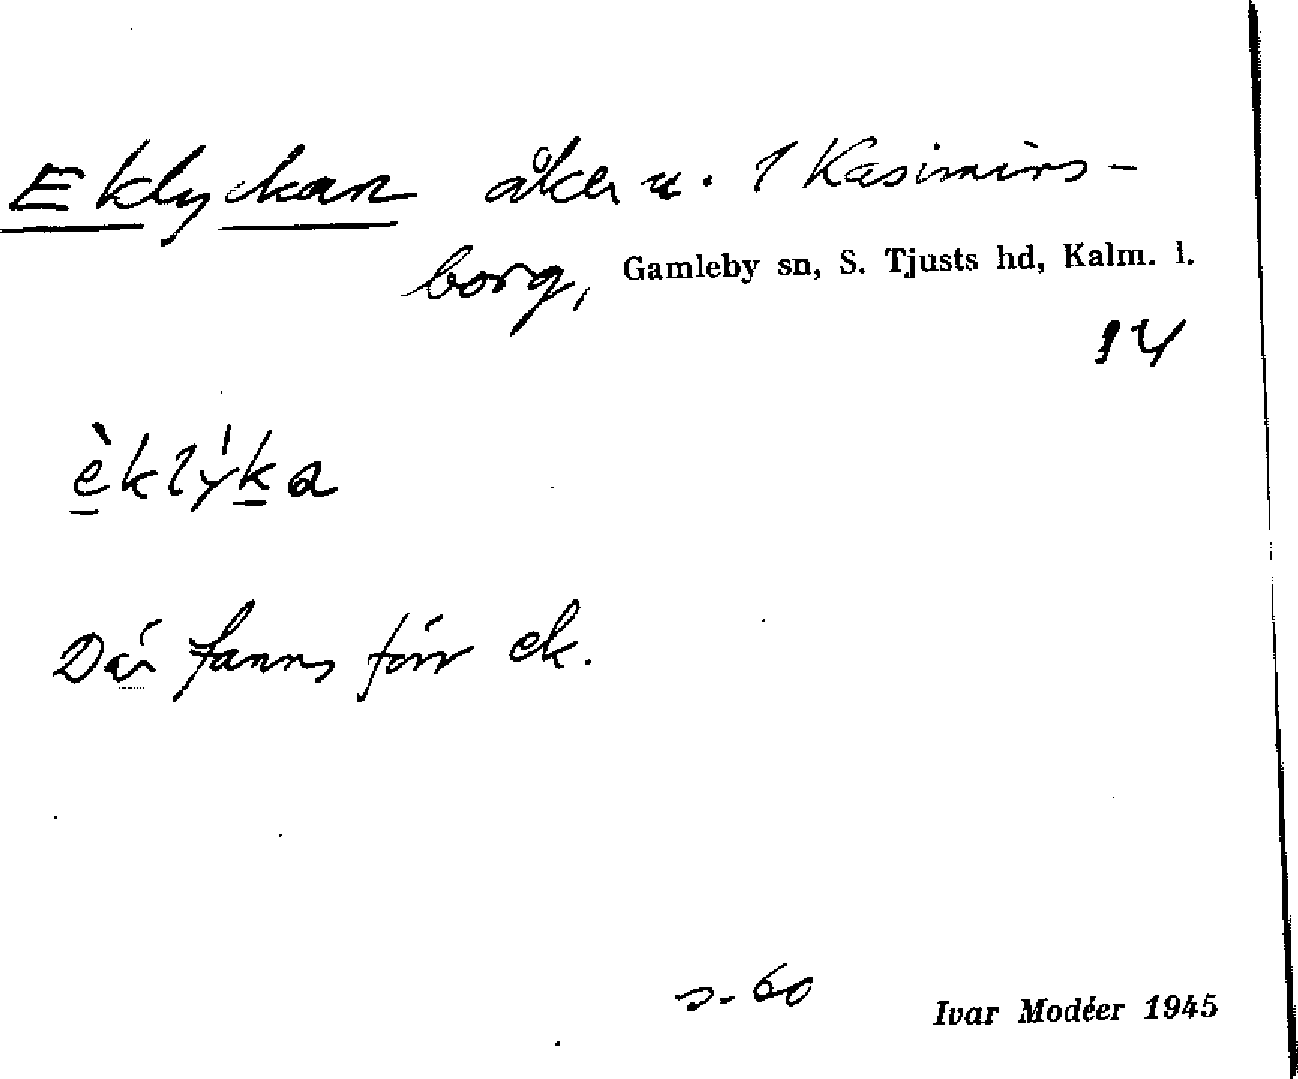 Eklyckan åker u. 1 Kasimirs-
borg, Gamleby sn, S. Tjusts hd, Kalm. l.
14
èklý̍ka
Där fanns förr ek.
s. 60
Ivar Modéer 1945